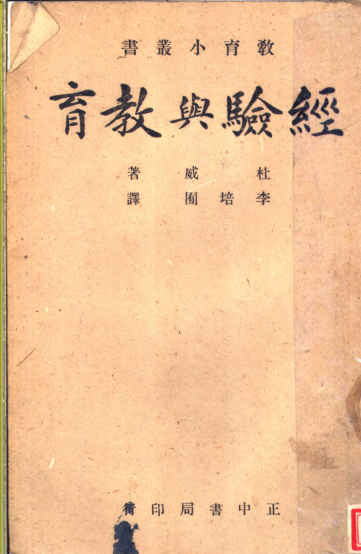 教育小叢書
經驗與教育
杜威著
李培囿譯
正中書局印行